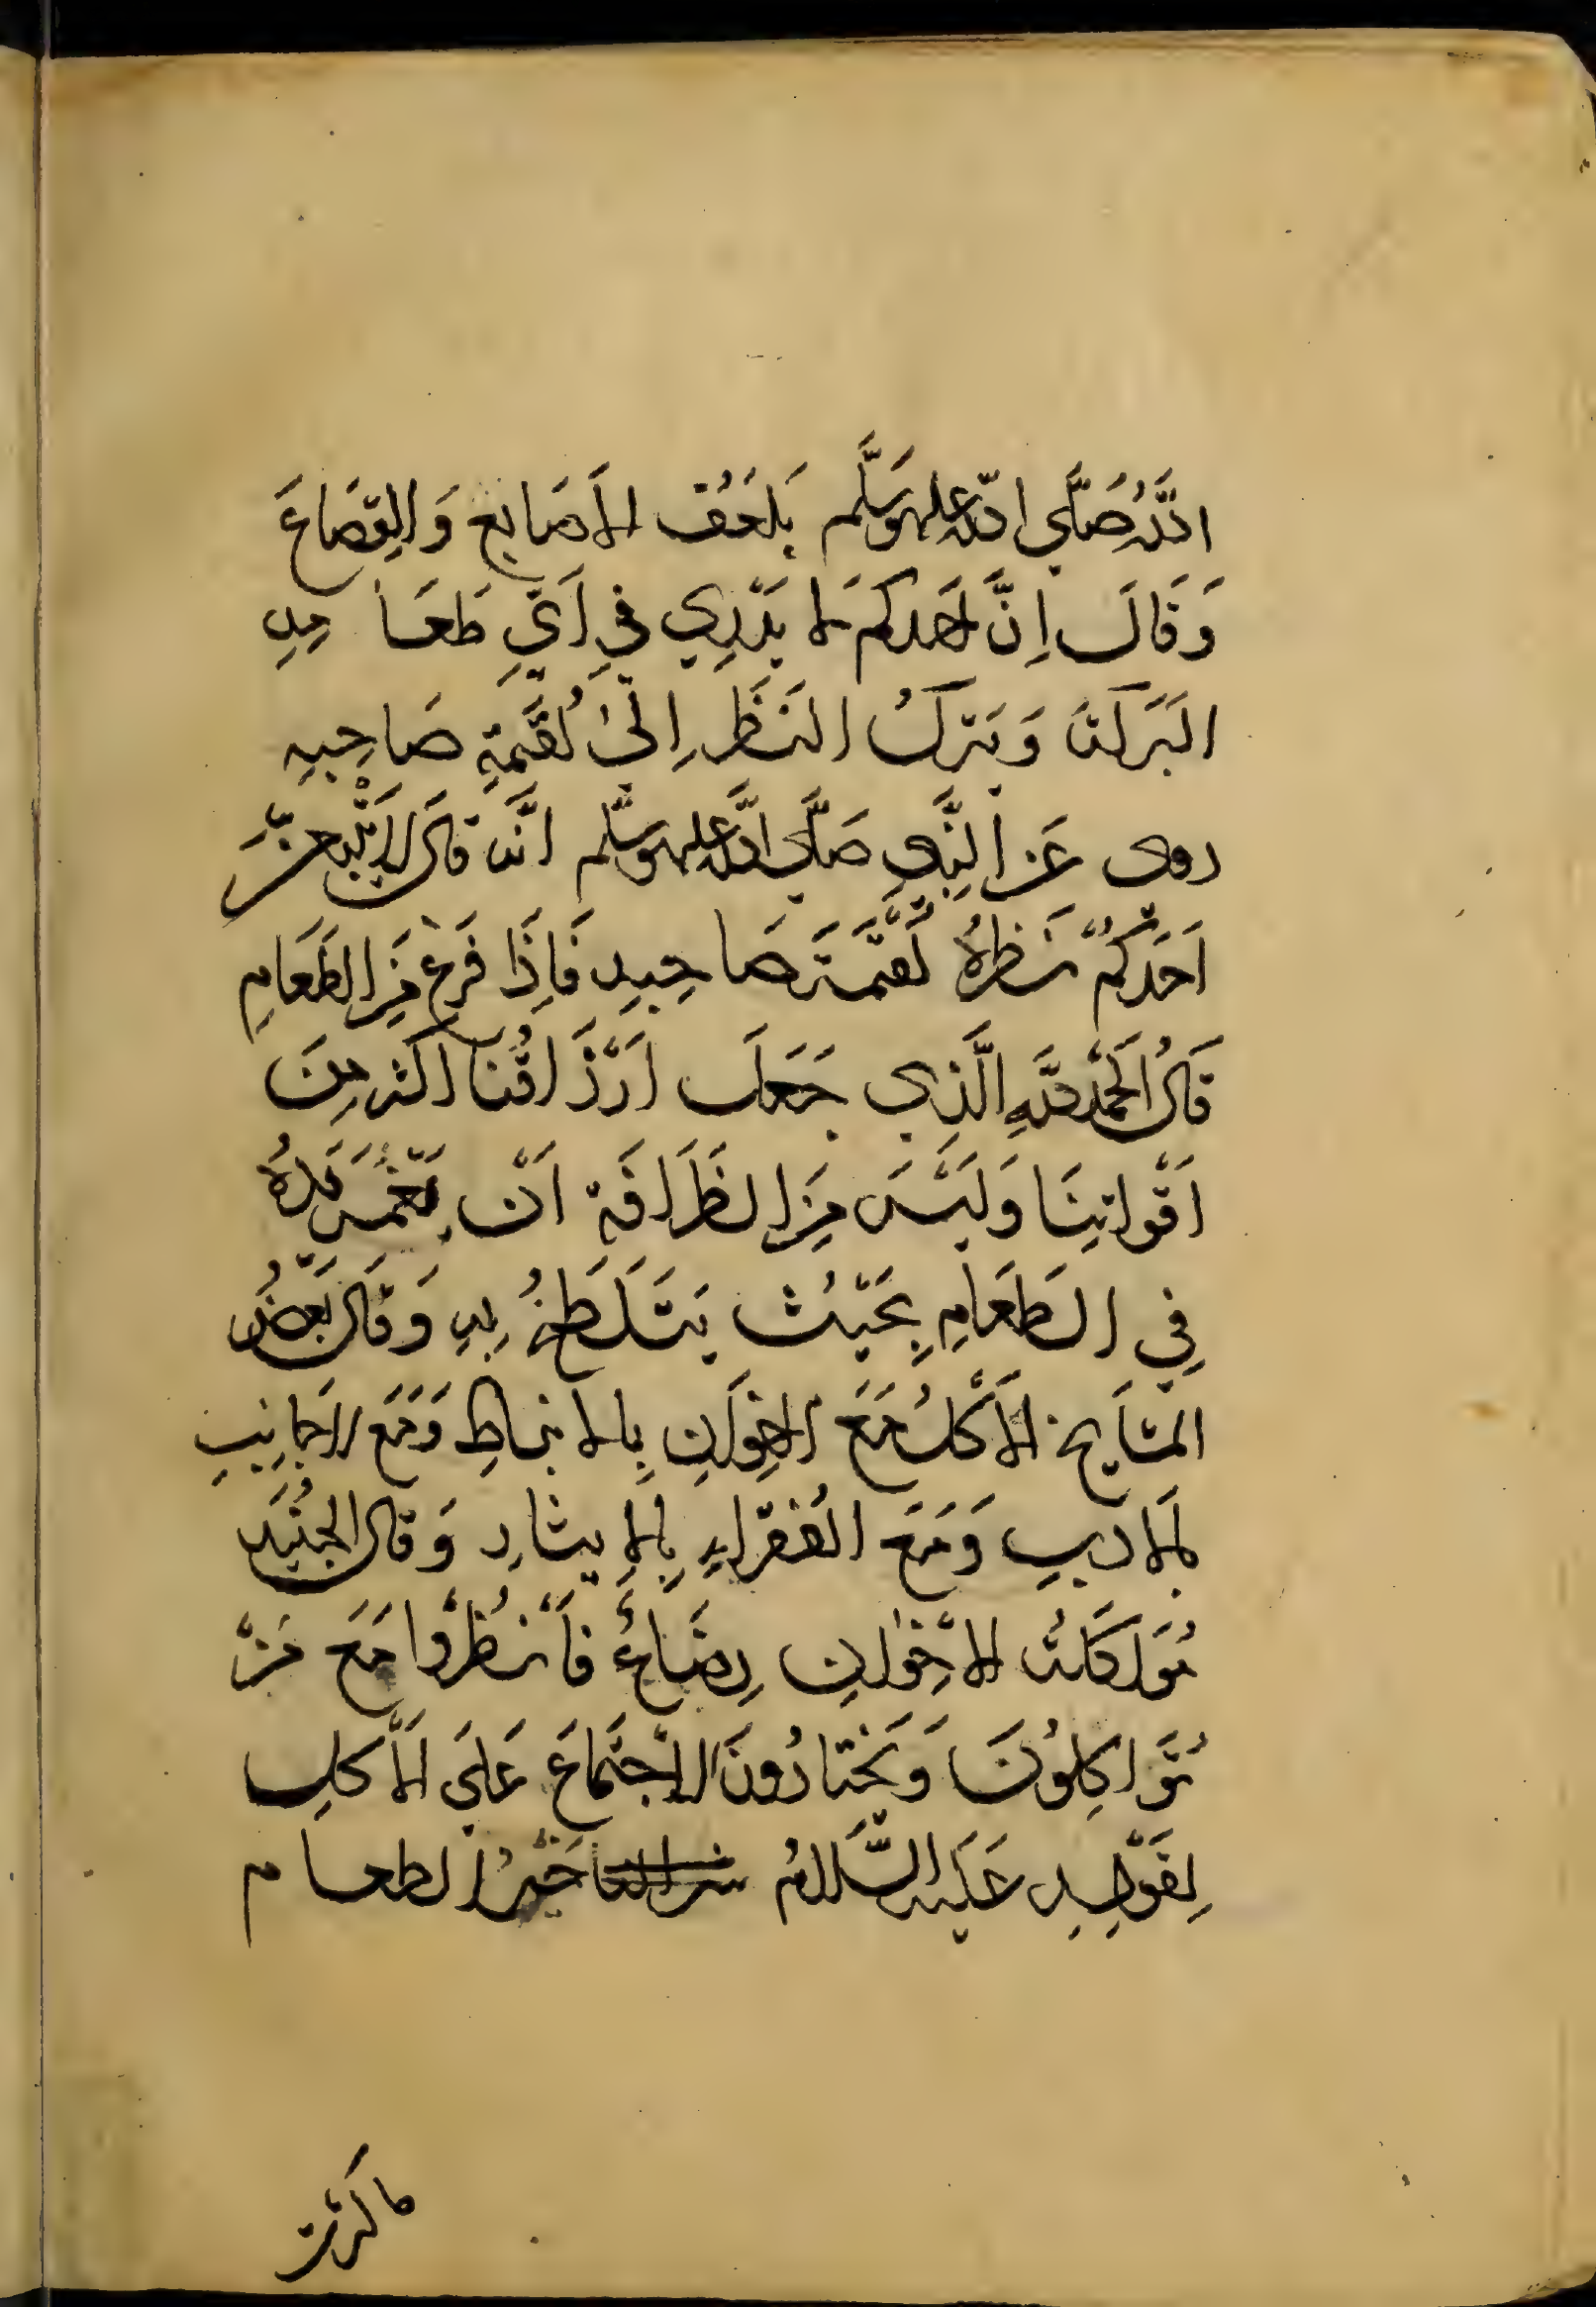 اللهُ صَلَّى اللّه عليه وسَلَّم بَلعَق الأَصَابع وَالقِصَاعَ
وَقَالَ اِنَّ اَحدكم لا يَدْرِي فِي اَيِّ طَعَا مِهِ
البَرَكَة وَيترك النَظَر اِلىٰ لُقْمَةِ صَاحِبِهِ
روى عَن النَّبِي صَلَّى اللَّه عليه وسلّم انَّه قَال لا يتبعنّ
اَحَدكُمْ نَظرهُ لُقْمَةَ صَاحِبِهِ فَاِذَا فَرغ مِن الطَعَامِ
قَالَ الحَمْدُ لِلَّهِ الَّذِي جَعَلَ اَرْزَاقُنَا اكثر مِنَ
اَقْواتِنَا وَلَيْسَ مِن الظَرَافَة اَنْ يَغْمسَ يَدهُ
فِي الطَعَامِ بِحَيْثُ يَتَلَطخُ بِهِ وَقَال بَعْضُ
المشَايخ الأَكْلُ مَعَ الاخِوَانِ بِالانبساطِ وَمَع الاَجانِبِ
بالادبِ وَمَعَ الفُقَراءِ بِالايثَارِ وَقَال الجُنَيد
مُوَاكَلة الاخْوٰانِ رِضَاعُ فَأنْظُرْوا مَعَ مَنْ
تُوَاكِلوُنَ وَيَختَارُونَ الاجْتِمَاعَ عَلىَ الأَكلِ
لِقَوْلِهِ عَلَيه السَّلامُ شر الطعا خَيْرُ الطعام
ما كثرت